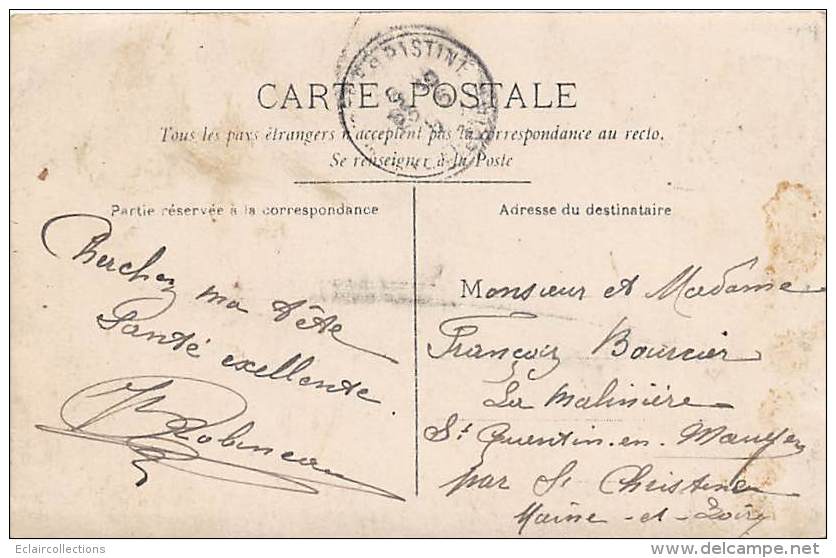 CARTE POSTALE
Tous les pays étrangers n'acceptent pas la correspondance au recto.
Se renseigner à la Poste
Partie réservée à la correspondance
Adresse du destinataire
Cherchez ma tête
Santé exellente.
Robineau
Monsieur et Madame
François Bourcier
La Malinière
St Quentin-en-Mauges
par St Christine
Maine-et-Loire
Eclaircollections
delcampe.net